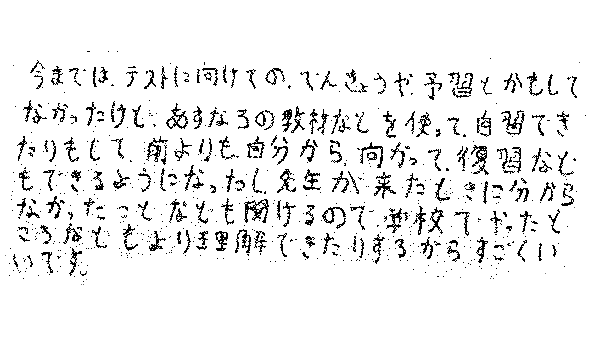 今までは、テストに向けての、べんきょうや、予習とかもして
なかったけど、あすなろの教材などを使って、自習でき
たりもして、前よりも、自分から、向かって、復習など
もできるようになったし、先生が、来たときに分から
なかったことなども聞けるので、学校でやったと
ころなどもより理解できたりするからすごくい
いです。